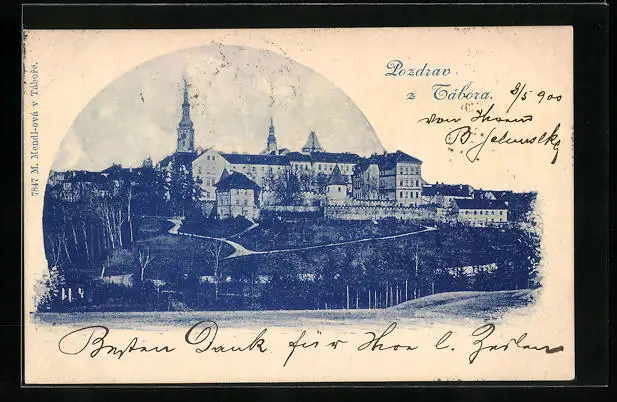 Pozdrav
z Tábora.
8/5 900
von Ihrem
7847 M. Mendl-ová v Táboře.
Besten Dank für Ihre l. Zeilen